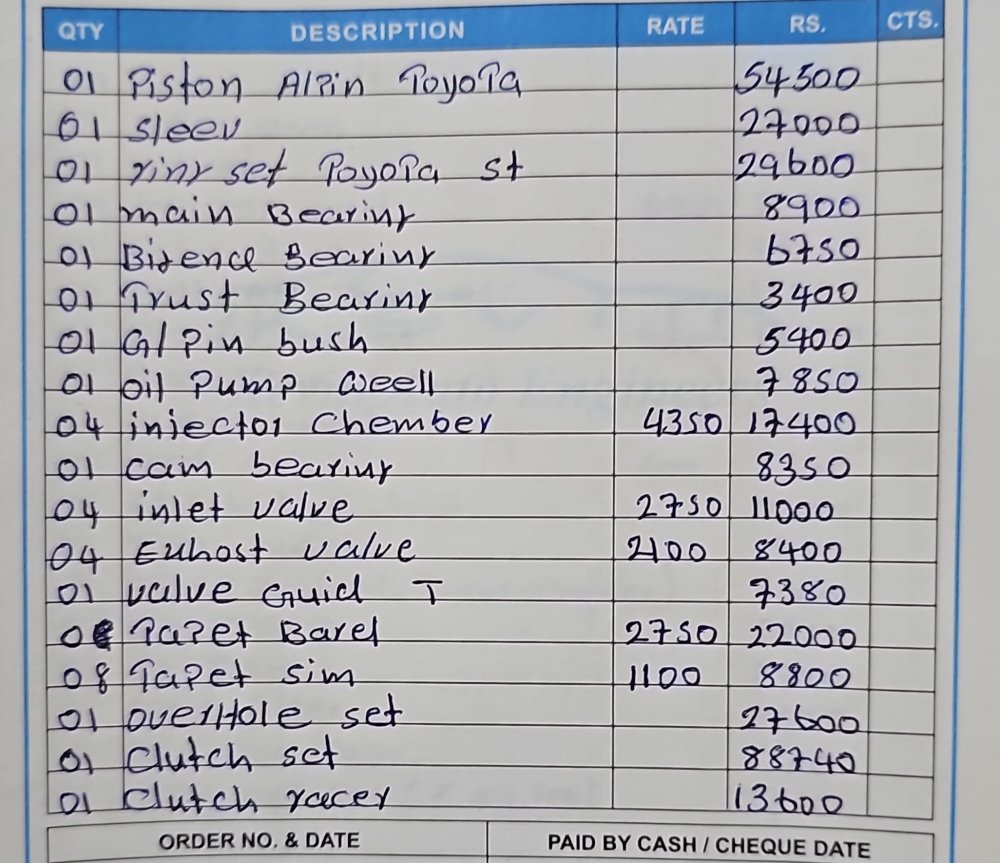 QTY DESCRIPTION RATE RS. CTS.
01 Piston Alpin Toyota 54500
01 sleev 27000
01 rinr set Toyota st 29600
01 main Bearinr 8900
01 Bigence Bearinr 6750
01 Trust Bearinr 3400
01 G/Pin bush 5400
01 oil Pump weell 7850
04 injector Chember 4350 17400
01 cam bearinr 8350
04 inlet valve 2750 11000
04 Exhost valve 2100 8400
01 valve Guid T 7380
08 Tapet Barel 2750 22000
08 Tapet sim 1100 8800
01 overHole set 27600
01 Clutch set 88740
01 Clutch racer 13600
ORDER NO. & DATE PAID BY CASH / CHEQUE DATE